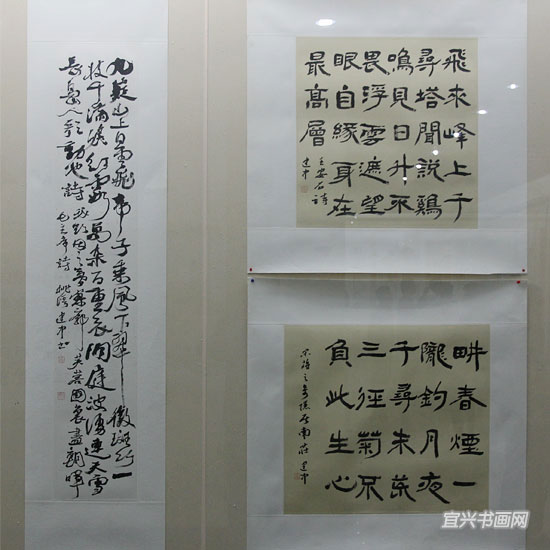 九嶷山上白雲飛帝子乘風下翠微斑竹一
枝千滴淚紅霞萬朵百重衣洞庭波湧連天雪
長島人歌動地詩我欲因之夢寥廓芙蓉國裏盡朝暉
毛主席詩 桃溪建中書
飛來峰上千
尋塔聞說鷄
鳴見日升不
畏浮雲遮望
眼自緣身在
最高層 王安石詩
建中
畊春煙一
隴釣月夜
千尋未荒
三徑菊不
負此生心
宋蔣之奇 南莊 建中
宜兴书画网